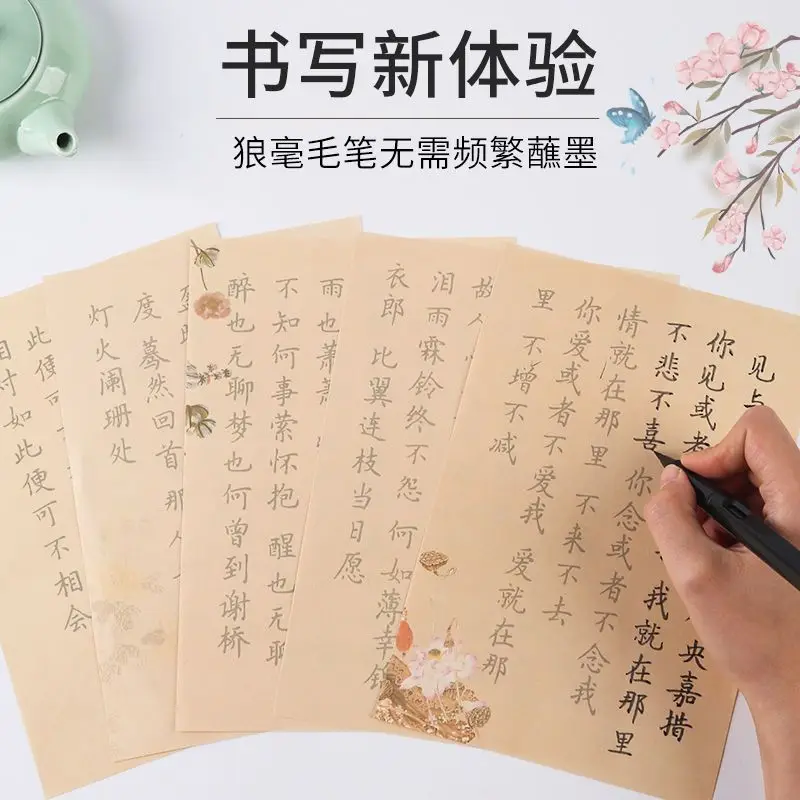 书写新体验
狼毫毛笔无需频繁蘸墨
见与
央嘉措
你见或者
我就在那里
不悲不喜 你念或者不念我
情就在那里 不来不去
你爱或者不爱我 爱就在那
里 不增不减
故人
泪雨霖铃终不怨 何如薄幸锦
衣郎 比翼连枝当日愿
雨也萧萧
不知何事萦怀抱 醒也无聊
醉也无聊梦也何曾到谢桥
度 蓦然回首 那人
灯火阑珊处
此便可
如此便可不相会